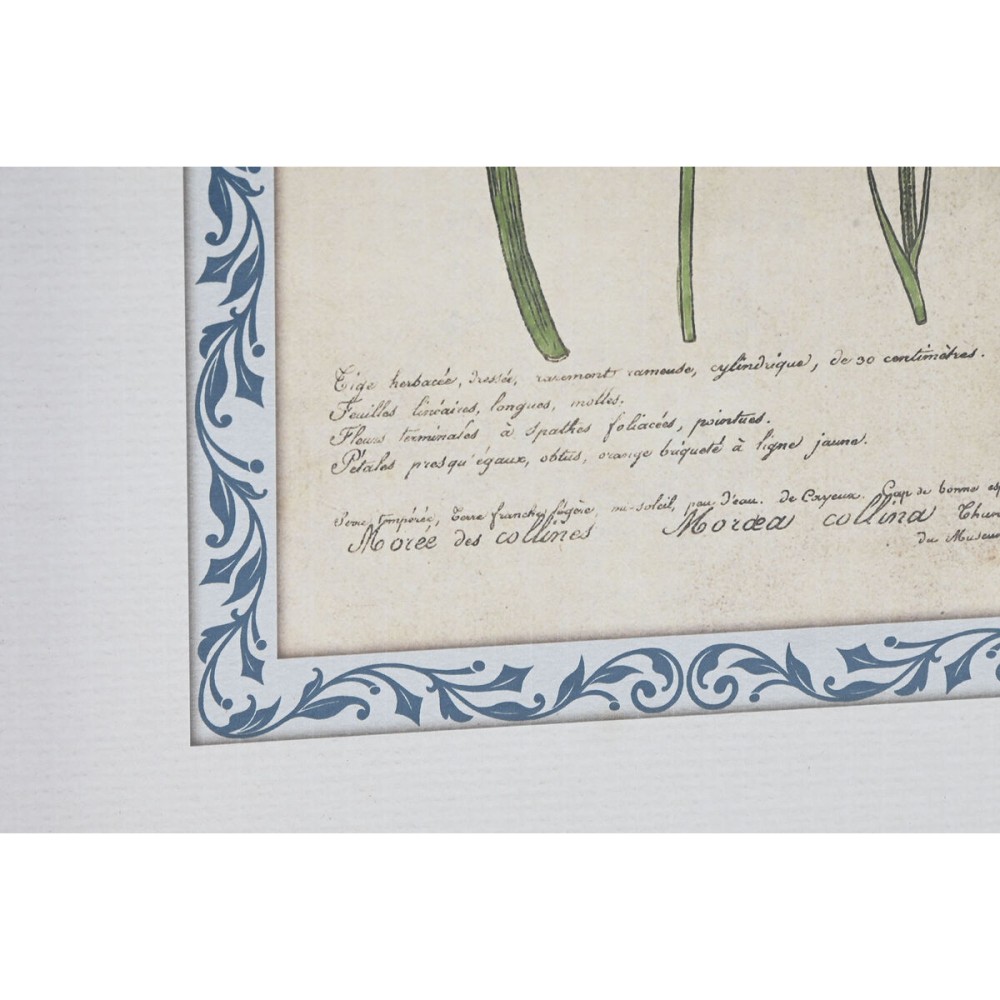 Tige herbacée, dressée, rarement rameuse, cylindrique, de 30 centimètres.
Feuilles linéaires, longues, molles.
Fleurs terminales à spathes foliacées, pointues.
Pétales presqu'égaux, obtus, orange briqueté à ligne jaune.
Serre tempérée, Terre franche légère, au soleil, peu d'eau. de Cayeux. Cap de bonne esp
Morée des collines Moræa collina Thun
du Museum